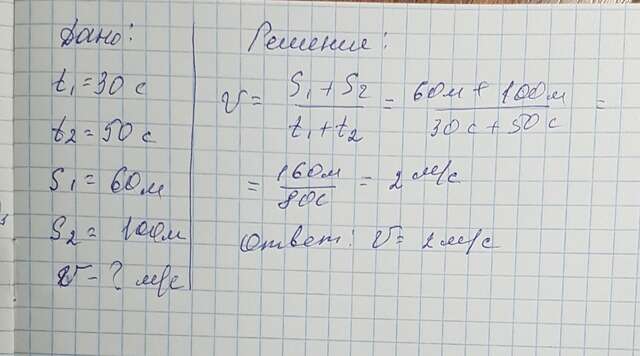 Дано:
t₁ = 30 с
t₂ = 50 с
S₁ = 60 м
S₂ = 100 м
v - ? м/с
Решение:
v = (S₁ + S₂)/(t₁ + t₂) = (60м + 100м)/(30с + 50с) =
= 160м/80с = 2 м/с
Ответ: v = 2 м/с